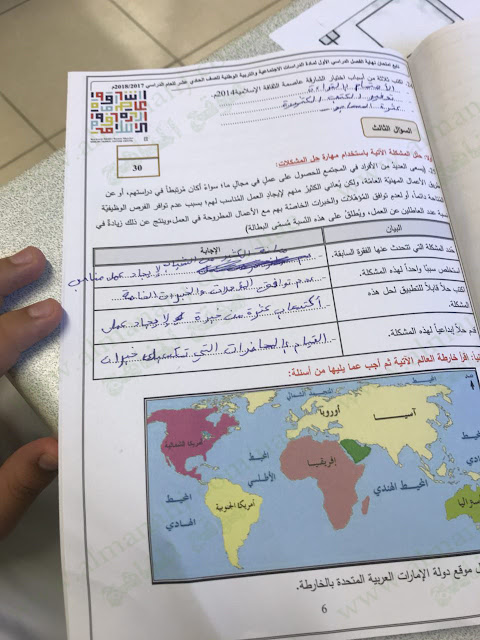 تابع امتحان نهاية الفصل الدراسي الأول لمادة الدراسات الاجتماعية والتربية الوطنية للصف الحادي عشر للعام الدراسي 2018/2017م
اكتب ثلاثة من أسباب اختيار الشارقة عاصمة الثقافة الإسلامية 2014م.
السؤال الثالث
30
حلل المشكلة الآتية باستخدام مهارة حل المشكلات:
يسعى العديد من الأفراد في المجتمع للحصول على عمل في مجالٍ ما؛ سواءً أكان مرتبطاً في دراستهم، أو عن
طريق الأعمال المهنيّة العامّة، ولكن يُعاني الكثير منهم لإيجاد العمل المُناسب لهم؛ بسبب عدم توافر الفرص الوظيفيّة
دائماً، أو لعدم توافق المؤهّلات والخبرات الخاصّة بهم مع الأعمال المطروحة في العمل، وينتج عن ذلك زيادةٌ في
نسبة عدد العاطلين عن العمل، ويُطلقُ على هذه النّسبة مُسمّى البطالة)
البيان
الإجابة
حدد المشكلة التي تتحدث عنها الفقرة السابقة.
لإيجاد عمل مناسب
استخلص سبباً واحداً لهذه المشكلة.
عدم توافق المؤهلات والخبرات الخاصة
اكتب حلاً قابلاً للتطبيق لحل هذه
المشكلة.
خبرة لإيجاد عمل
قدم حلاً إبداعياً لهذه المشكلة.
القيام بالمحاضرات التي تكسبك خبرات
اقرأ خارطة العالم الآتية ثم أجب عما يليها من أسئلة:
المحيط المتجمد الشمالي
أوروبا
آسيا
أمريكا الشمالية
المحيط
الأطلسي
إفريقيا
المحيط
الهادي
المحيط
الهادي
أمريكا الجنوبية
المحيط الهندي
موقع دولة الإمارات العربية المتحدة بالخارطة.
6